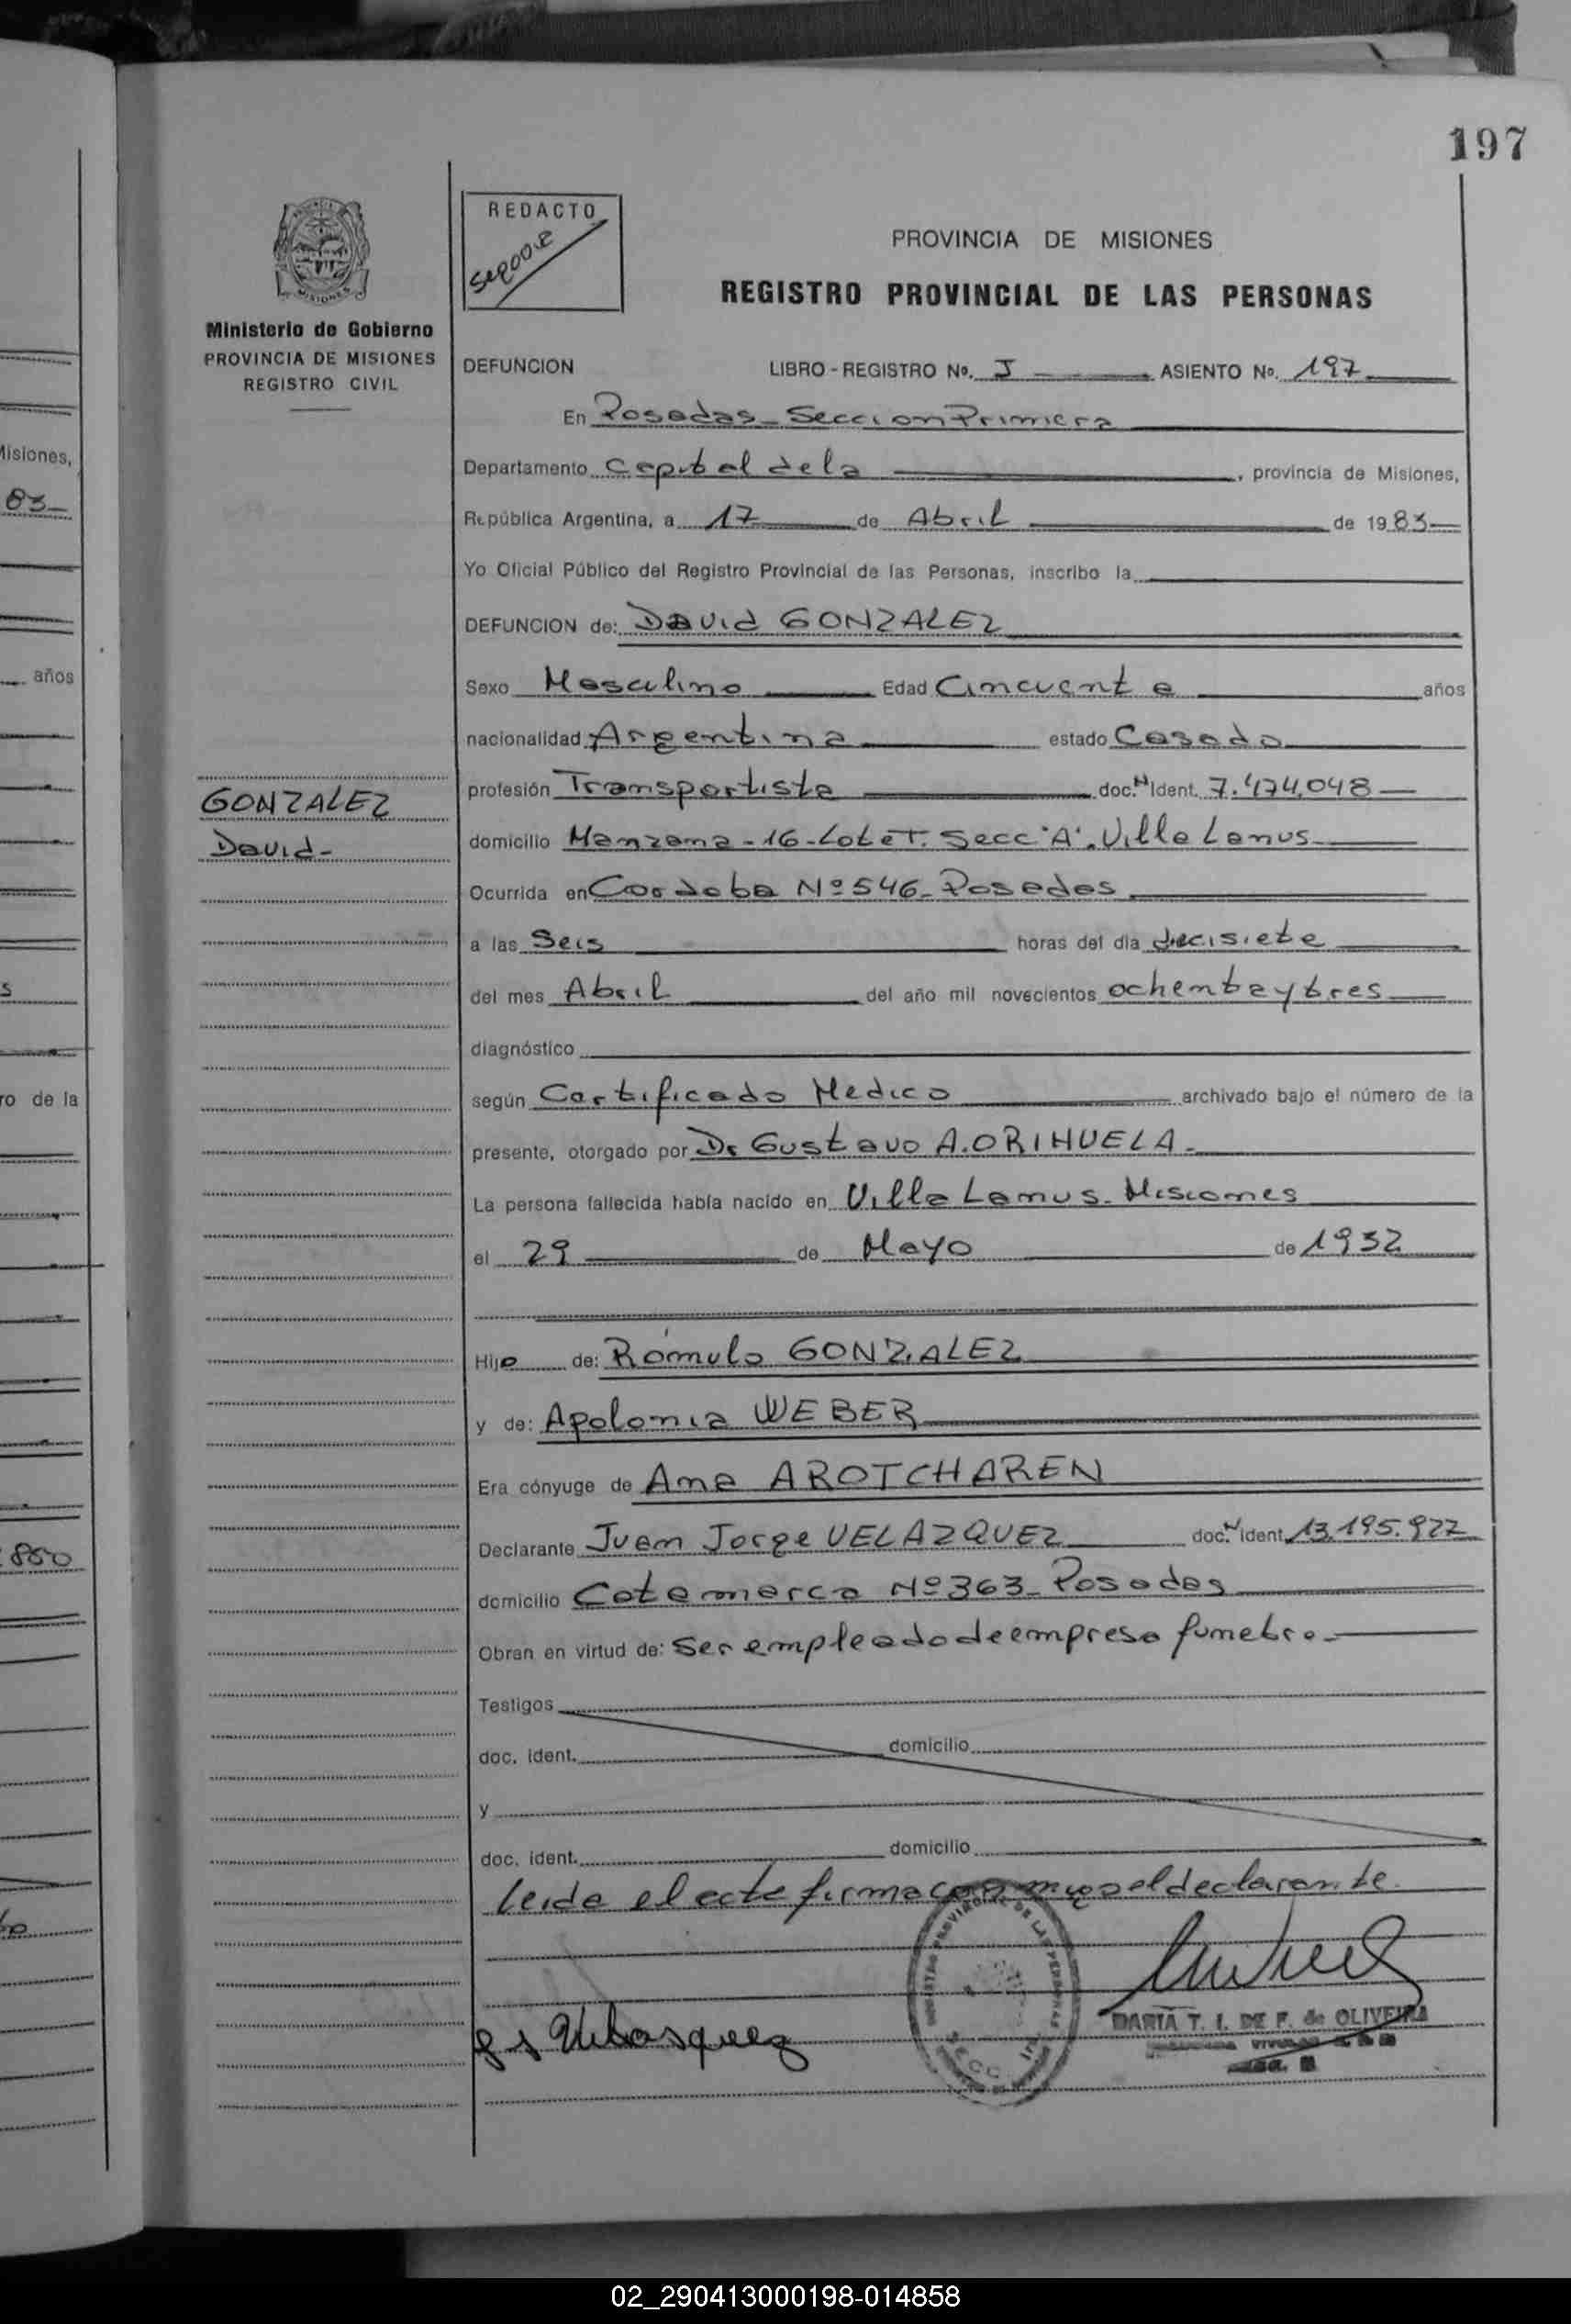 197
REDACTO
PROVINCIA DE MISIONES
REGISTRO PROVINCIAL DE LAS PERSONAS
Ministerio de Gobierno
PROVINCIA DE MISIONES
REGISTRO CIVIL
DEFUNCION LIBRO - REGISTRO No. I ASIENTO No. 197
En Posadas - Seccion Primera
Departamento Capital de la, provincia de Misiones,
República Argentina, a 17 de Abril de 1983
Yo Oficial Público del Registro Provincial de las Personas, inscribo la
DEFUNCION de: David GONZALEZ
Sexo Masculino Edad Cincuenta años
nacionalidad Argentina estado Casado
profesión Transportista doc. N Ident. 7.474.048
GONZALEZ
David-
domicilio Manzana - 16 - Lote T. Secc "A". Villa Lanus
Ocurrida en Cordoba Nº 546 - Posadas
a las Seis horas del dia diecisiete
del mes Abril del año mil novecientos ochenta y tres
diagnóstico
según Certificado Medico archivado bajo el número de la
presente, otorgado por Dr Gustavo A. ORIHUELA -
La persona fallecida había nacido en Villa Lanus - Misiones
el 29 de Mayo de 1932
Hijo de: Rómulo GONZALEZ
y de: Apolonia WEBER
Era cónyuge de Ana AROTCHAREN
Declarante Juan Jorge VELAZQUEZ doc. N ident. 13.195.927
domicilio Catamarca Nº 363 - Posadas
Obran en virtud de: Ser empleado de empresa funebre -
Testigos
doc. ident. domicilio
y
doc. ident. domicilio
Leida el acta firma el declarante.
Velasquez
MARIA T. I. DE F. de OLIVEIRA
Misiones,
83
años
s
ro de la
850
02_290413000198-014858